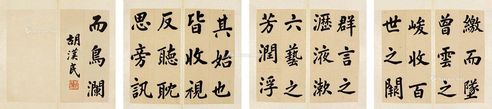 其始也
皆收視
反聽耽
思旁訊
群言之
瀝液漱
六藝之
芳潤浮
繳而墜
曾雲之
峻收百
世之闕
而鳥瀾
胡漢民